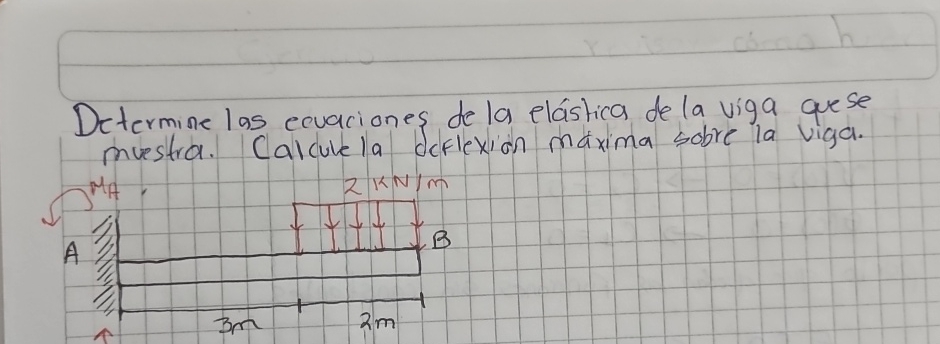 Determine las ecuaciones de la elástica de la viga que se
muestra. Calcule la deflexión máxima sobre la viga.
MA
2 KN/m
A
B
3m
2m